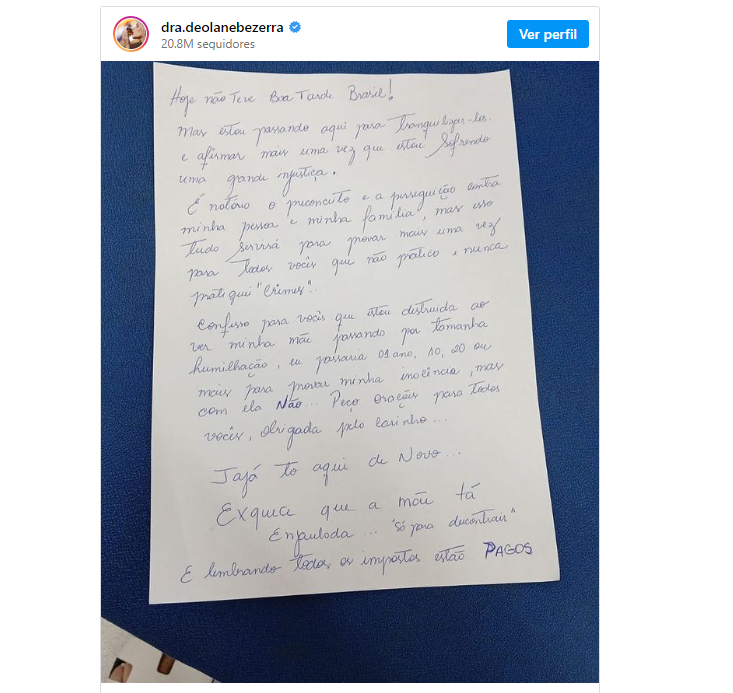 dra.deolanebezerra
20.8M seguidores
Ver perfil
Hoje não Teve Boa Tarde Brasil!
Mas estou passando aqui para tranquilizar-los.
e afirmar mais uma vez que estou sofrendo
uma grande injustiça.
É notório o preconceito e a perseguição contra
minha pessoa e minha família, mas isso
tudo servirá para provar mais uma vez
para todos vocês que não pratico e nunca
pratiquei "Crimes"..
Confesso para vocês que estou distruida ao
ver minha mãe passando por tamanha
humilhação, eu passaria 01 ano, 10, 20 ou
mais para provar minha inocência, mas
com ela Não... Peço orações para todos
vocês, obrigada pelo carinho...
Jajá to aqui de Novo...
Exquece que a mãe tá
Enjaulada... "só para descontrair"
E lembrando todos os impostos estão PAGOS